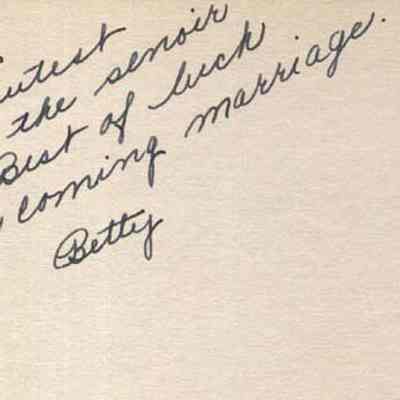 cutest
the senoir
Best of luck
coming marriage.
Betty